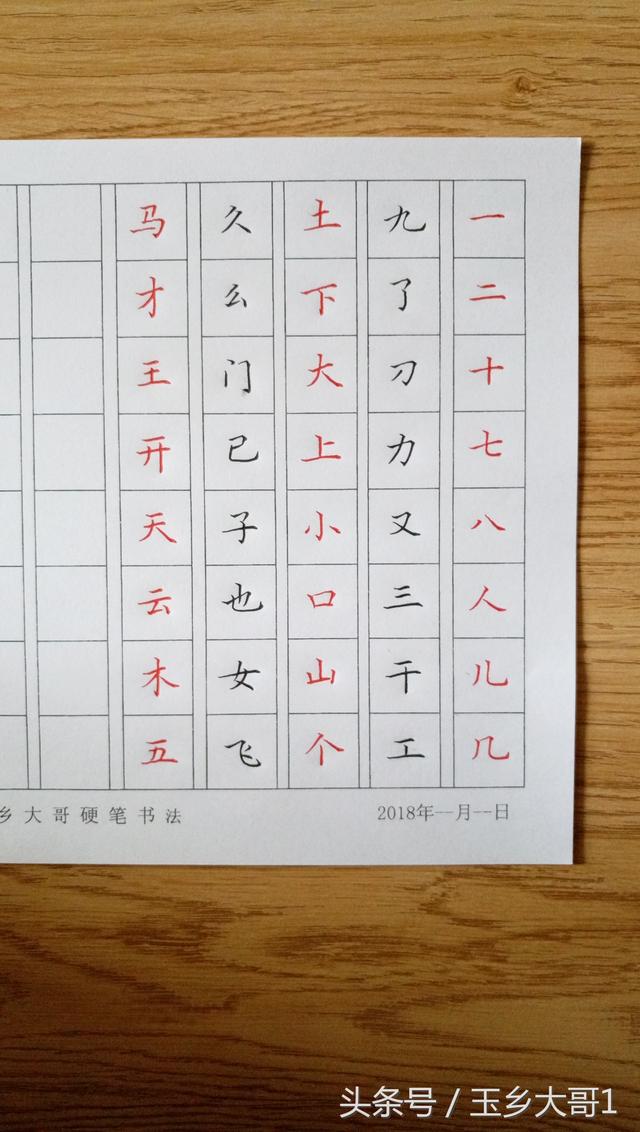 一二十七八人儿几
九了刁力又三干工
土下大上小口山个
久么门已子也女飞
马才王开天云木五
乡大哥硬笔书法
2018年--月--日
头条号 / 玉乡大哥1